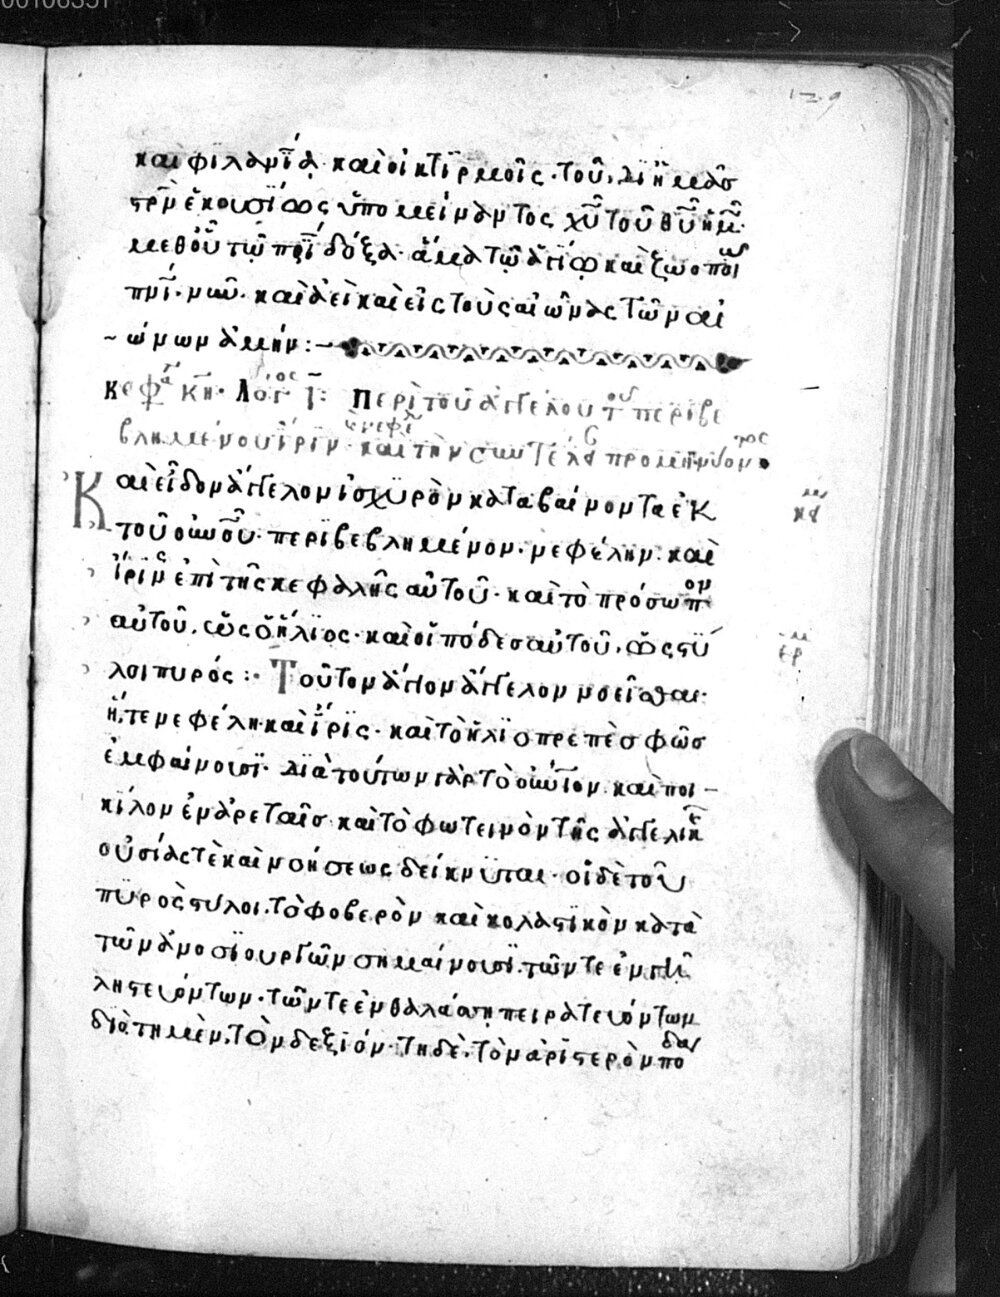 καὶ φιλανι̅ᾳ· καὶ οἰκτιρμοῖς· τοῦ, δι ἡμᾶσ
στρ̅ν ἑκουσίως ὑπομείναντος χ̅υ̅ τοῦ θ̅υ̅ ἡμ̅·
μεθ οὗ τῶ π̅ρ̅ι̅ δόξα· ἅμα τῶ ἁγίω καὶ ζωοποιῶ
π̅ν̅ι̅· νῦν· καὶ ἀεὶ καὶ εἰς τοὺς αἰῶνας τῶν αἰ
ώνων ἀμήν:
κεφ κη· λόγος ι: Περὶ τοῦ ἀγγέλου τοῦ περιβε
βλημένου ἶριν· καὶ τὴν συντέλ προμηνύοντος
νεφέ
Καὶ εἶδον ἄγγελον ἰσχυρὸν καταβαίνοντα ἐκ
τοῦ ο̅υ̅ν̅ο̅υ̅· περιβεβλημένον· νεφέλην· καὶ
ἶρις ἐπὶ τῆς κεφαλῆς αὐτοῦ· καὶ τὸ πρόσωπον
αὐτοῦ, ὡς ὁ ἥλιος· καὶ οἱ πόδεσ αὐτοῦ, ὡς στύ
λοι πυρός:· Τοῦτον ἅγιον ἄγγελον νοεῖσθαι·
ἥ, τε νεφέλη· καὶ ἶρις· καὶ τὸ ἡλιοπρεπὲσ φῶσ
ἐμφαίνουσι· διὰ τούτων γὰρ τὸ ο̅υ̅ν̅ιον· καὶ ποι
κίλον ἐν ἀρεταῖσ καὶ τὸ φωτεινὸν τῆς ἀγγελικῆς
οὐσίας τὲ καὶ νοήσεως δείκνυται· οἱ δὲ τοῦ
πυρὸς στύλοι, τὸ φοβερὸν καὶ κολαστικὸν κατὰ
τῶν ἀνοσιουργῶν σημαίνουσι· τῶν τε ἐν γῆ
ληστευόντων· τῶν τε ἐν θαλάσση πειρατευόντων
διότι μὲν, τὸν δεξιόν· τῆ δὲ, τὸν ἀριστερὸν πόδα